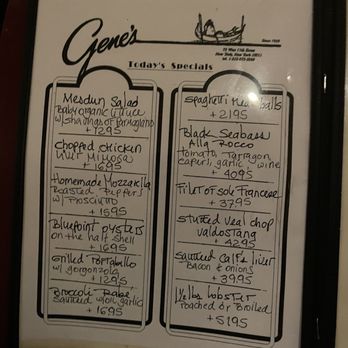 Gene's
Since 1919
73 West 11th Street
New York, New York 10011
Today's Specials
Mesclun Salad
Baby organic lettuce
w/ shavings of parmagiano
+ 1295
Chopped chicken
liver Mimosa
+ 1695
Homemade Mozzarella
Roasted Peppers
w/ Prosciutto
+ 1595
Bluepoint oysters
on the half shell
+ 1695
Grilled Portabello
w/ gorgonzola
+ 1295
Broccoli Rabe
sauteed w/oil, garlic
+ 1695
Spaghetti Meatballs
+ 2195
Black Seabass
Alla Rocco
Tomato, Tarragon,
capers, garlic, wine
+ 4095
Filet of sole Francese
+ 3795
Stuffed veal chop
valdostang
+ 4295
Sauteed Calf's liver
Bacon & onions
+ 3995
1½ lbs lobster
Poached or Broiled
+ 5195